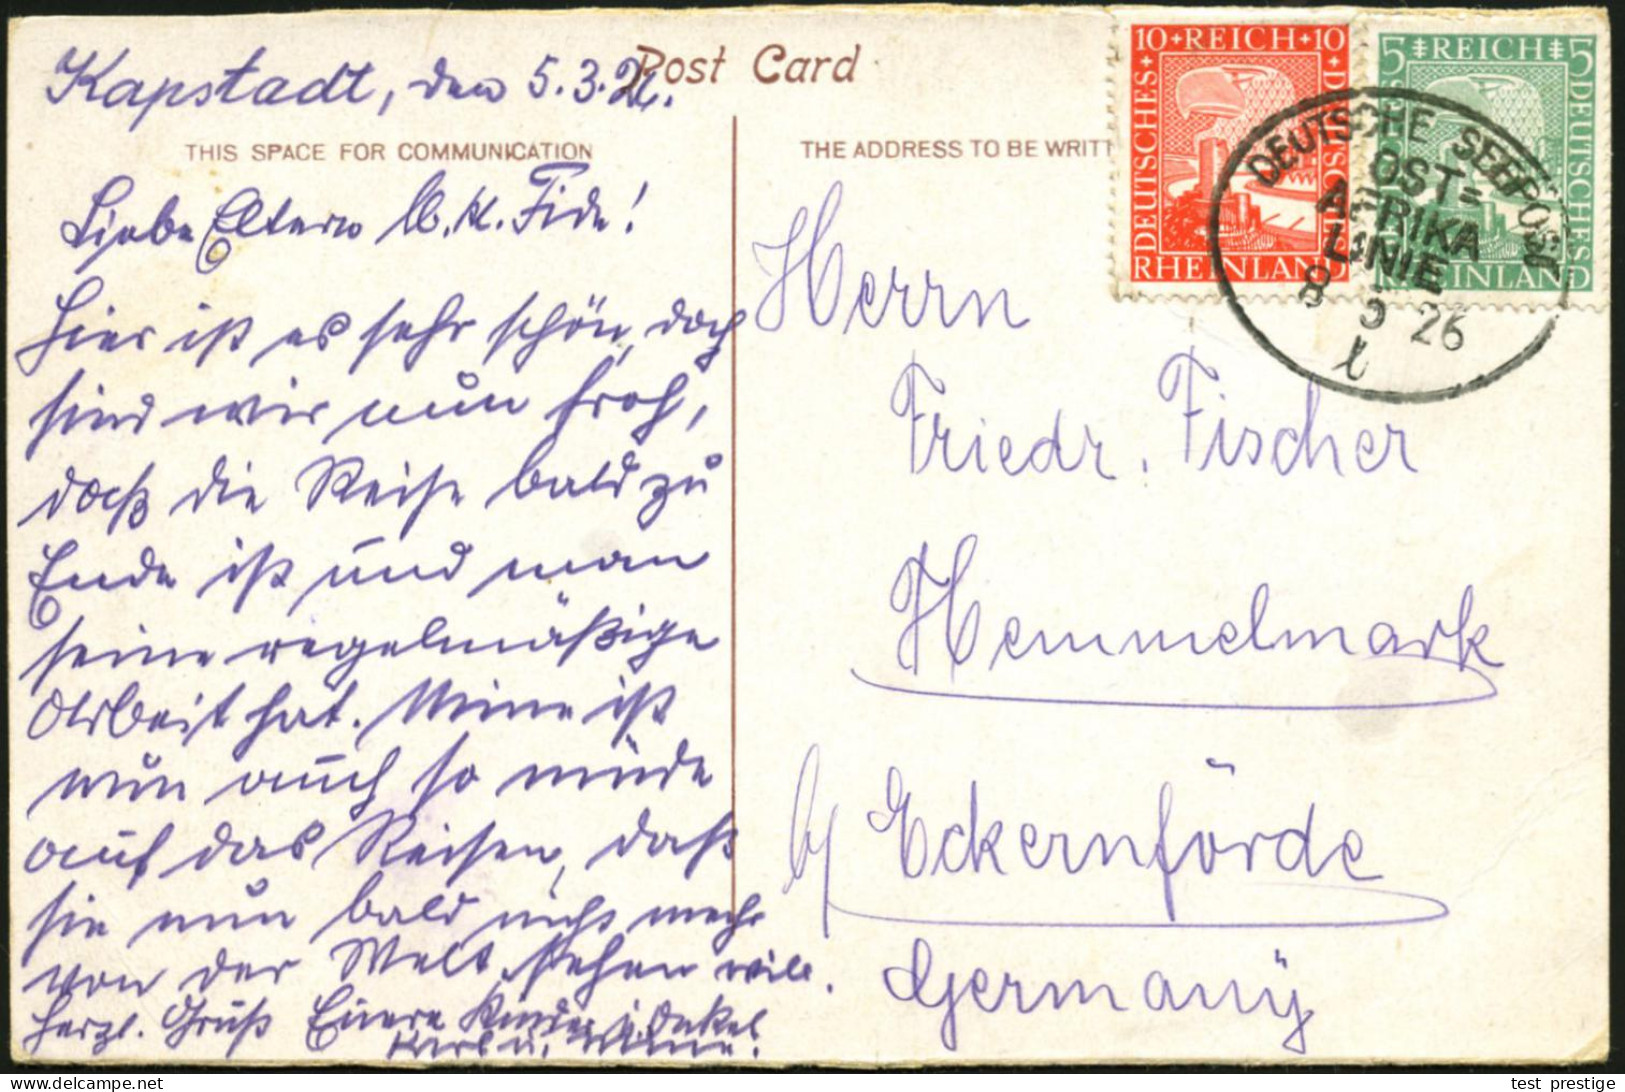 Post Card
Kapstadt, den 5.3.26.
THIS SPACE FOR COMMUNICATION
Liebe Eltern u. kl. Fide!
Hier ist es sehr schön, doch
sind wir nun froh,
daß die Reise bald zu
Ende ist und man
seine regelmäßige
Arbeit hat. Mine ist
nun auch so müde
auf das Reisen, daß
sie nun bald nichts mehr
von der Welt sehen will.
Herzl. Gruß Euere Kinder u. Onkel
Karl u. Mine.
THE ADDRESS TO BE WRITT
Herrn
Friedr. Fischer
Hemmelmark
b/ Eckernförde
Germany
10 REICH 10
DEUTSCHES
DEUTSCHES
RHEINLAND
5 REICH 5
DEUTSCHES
RHEINLAND
DEUTSCHE SEEPOST
OST=
AFRIKA
LINIE
8 3 26
l
test_prestige